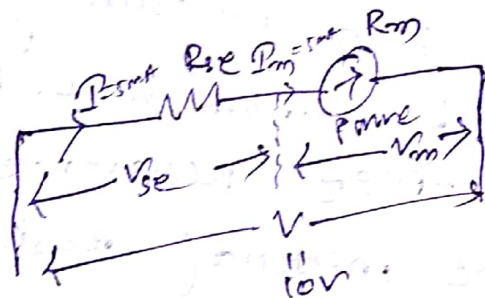 I=5mA Rse Im=5mA Rm
PMMC
Vse Vm
V
=
10V